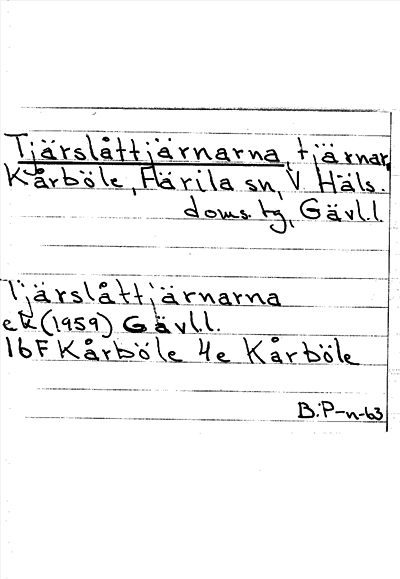 Tjärslåttjärnarna, tjärnar,
Kårböle, Färila sn, V. Häls.
doms. tg, Gävl.l.
Tjärslåttjärnarna
ek (1959) Gävl.l.
16F Kårböle 4e Kårböle
B.P-n-63